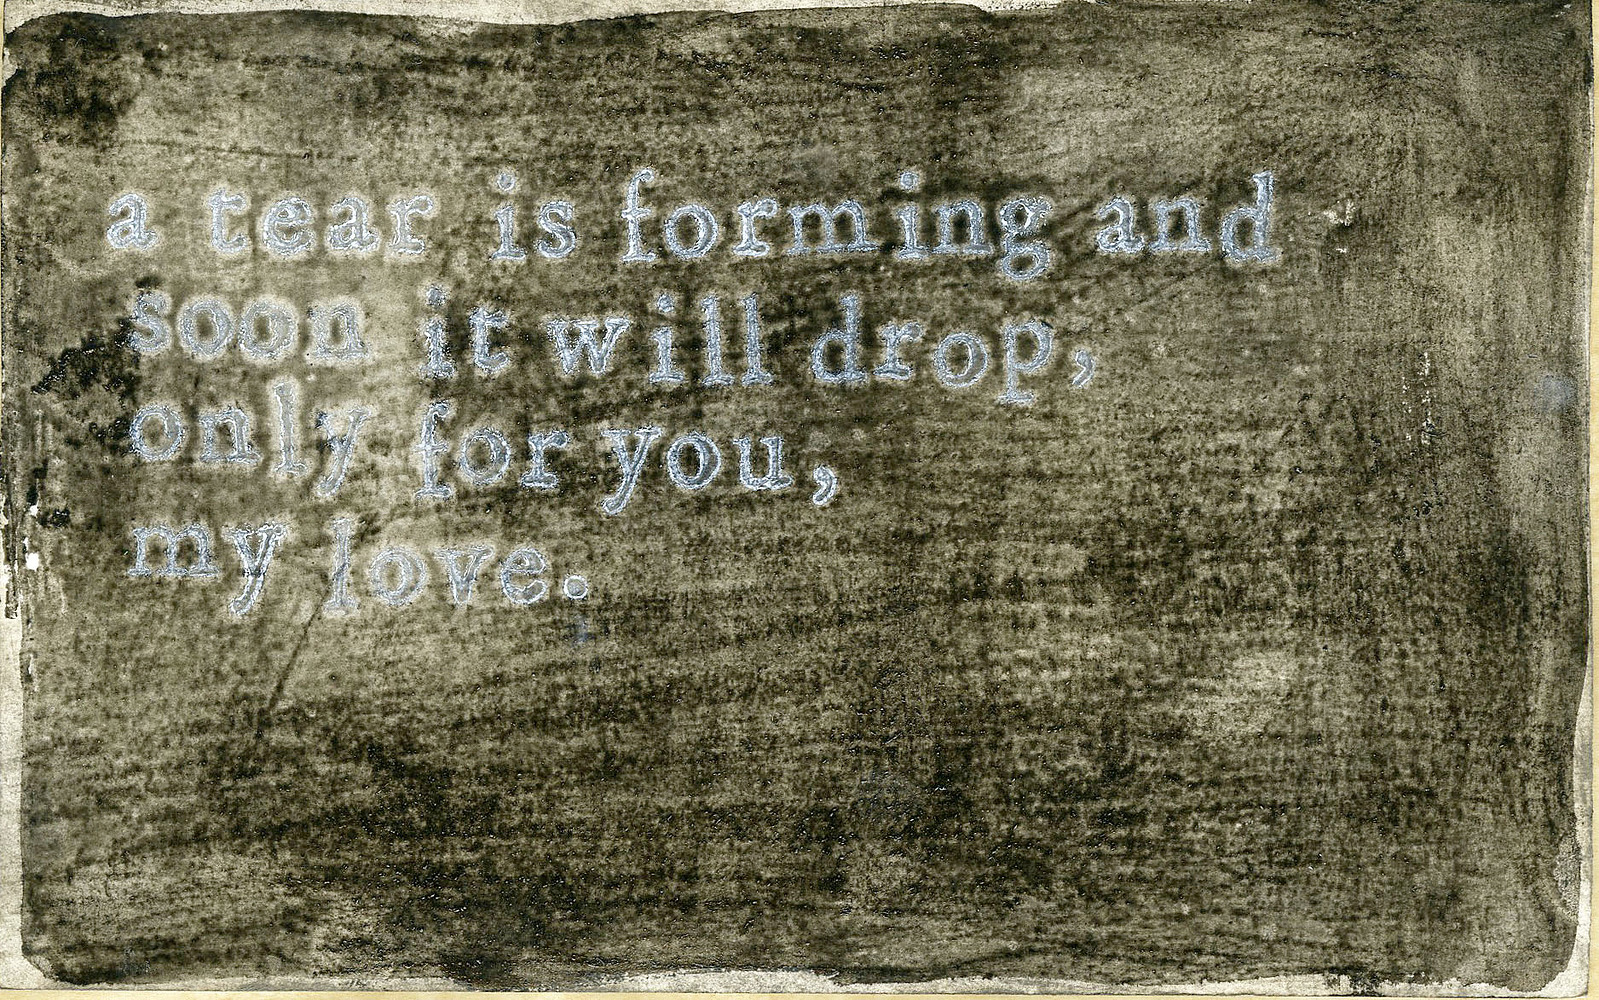 a tear is forming and
soon it will drop,
only for you,
my love.